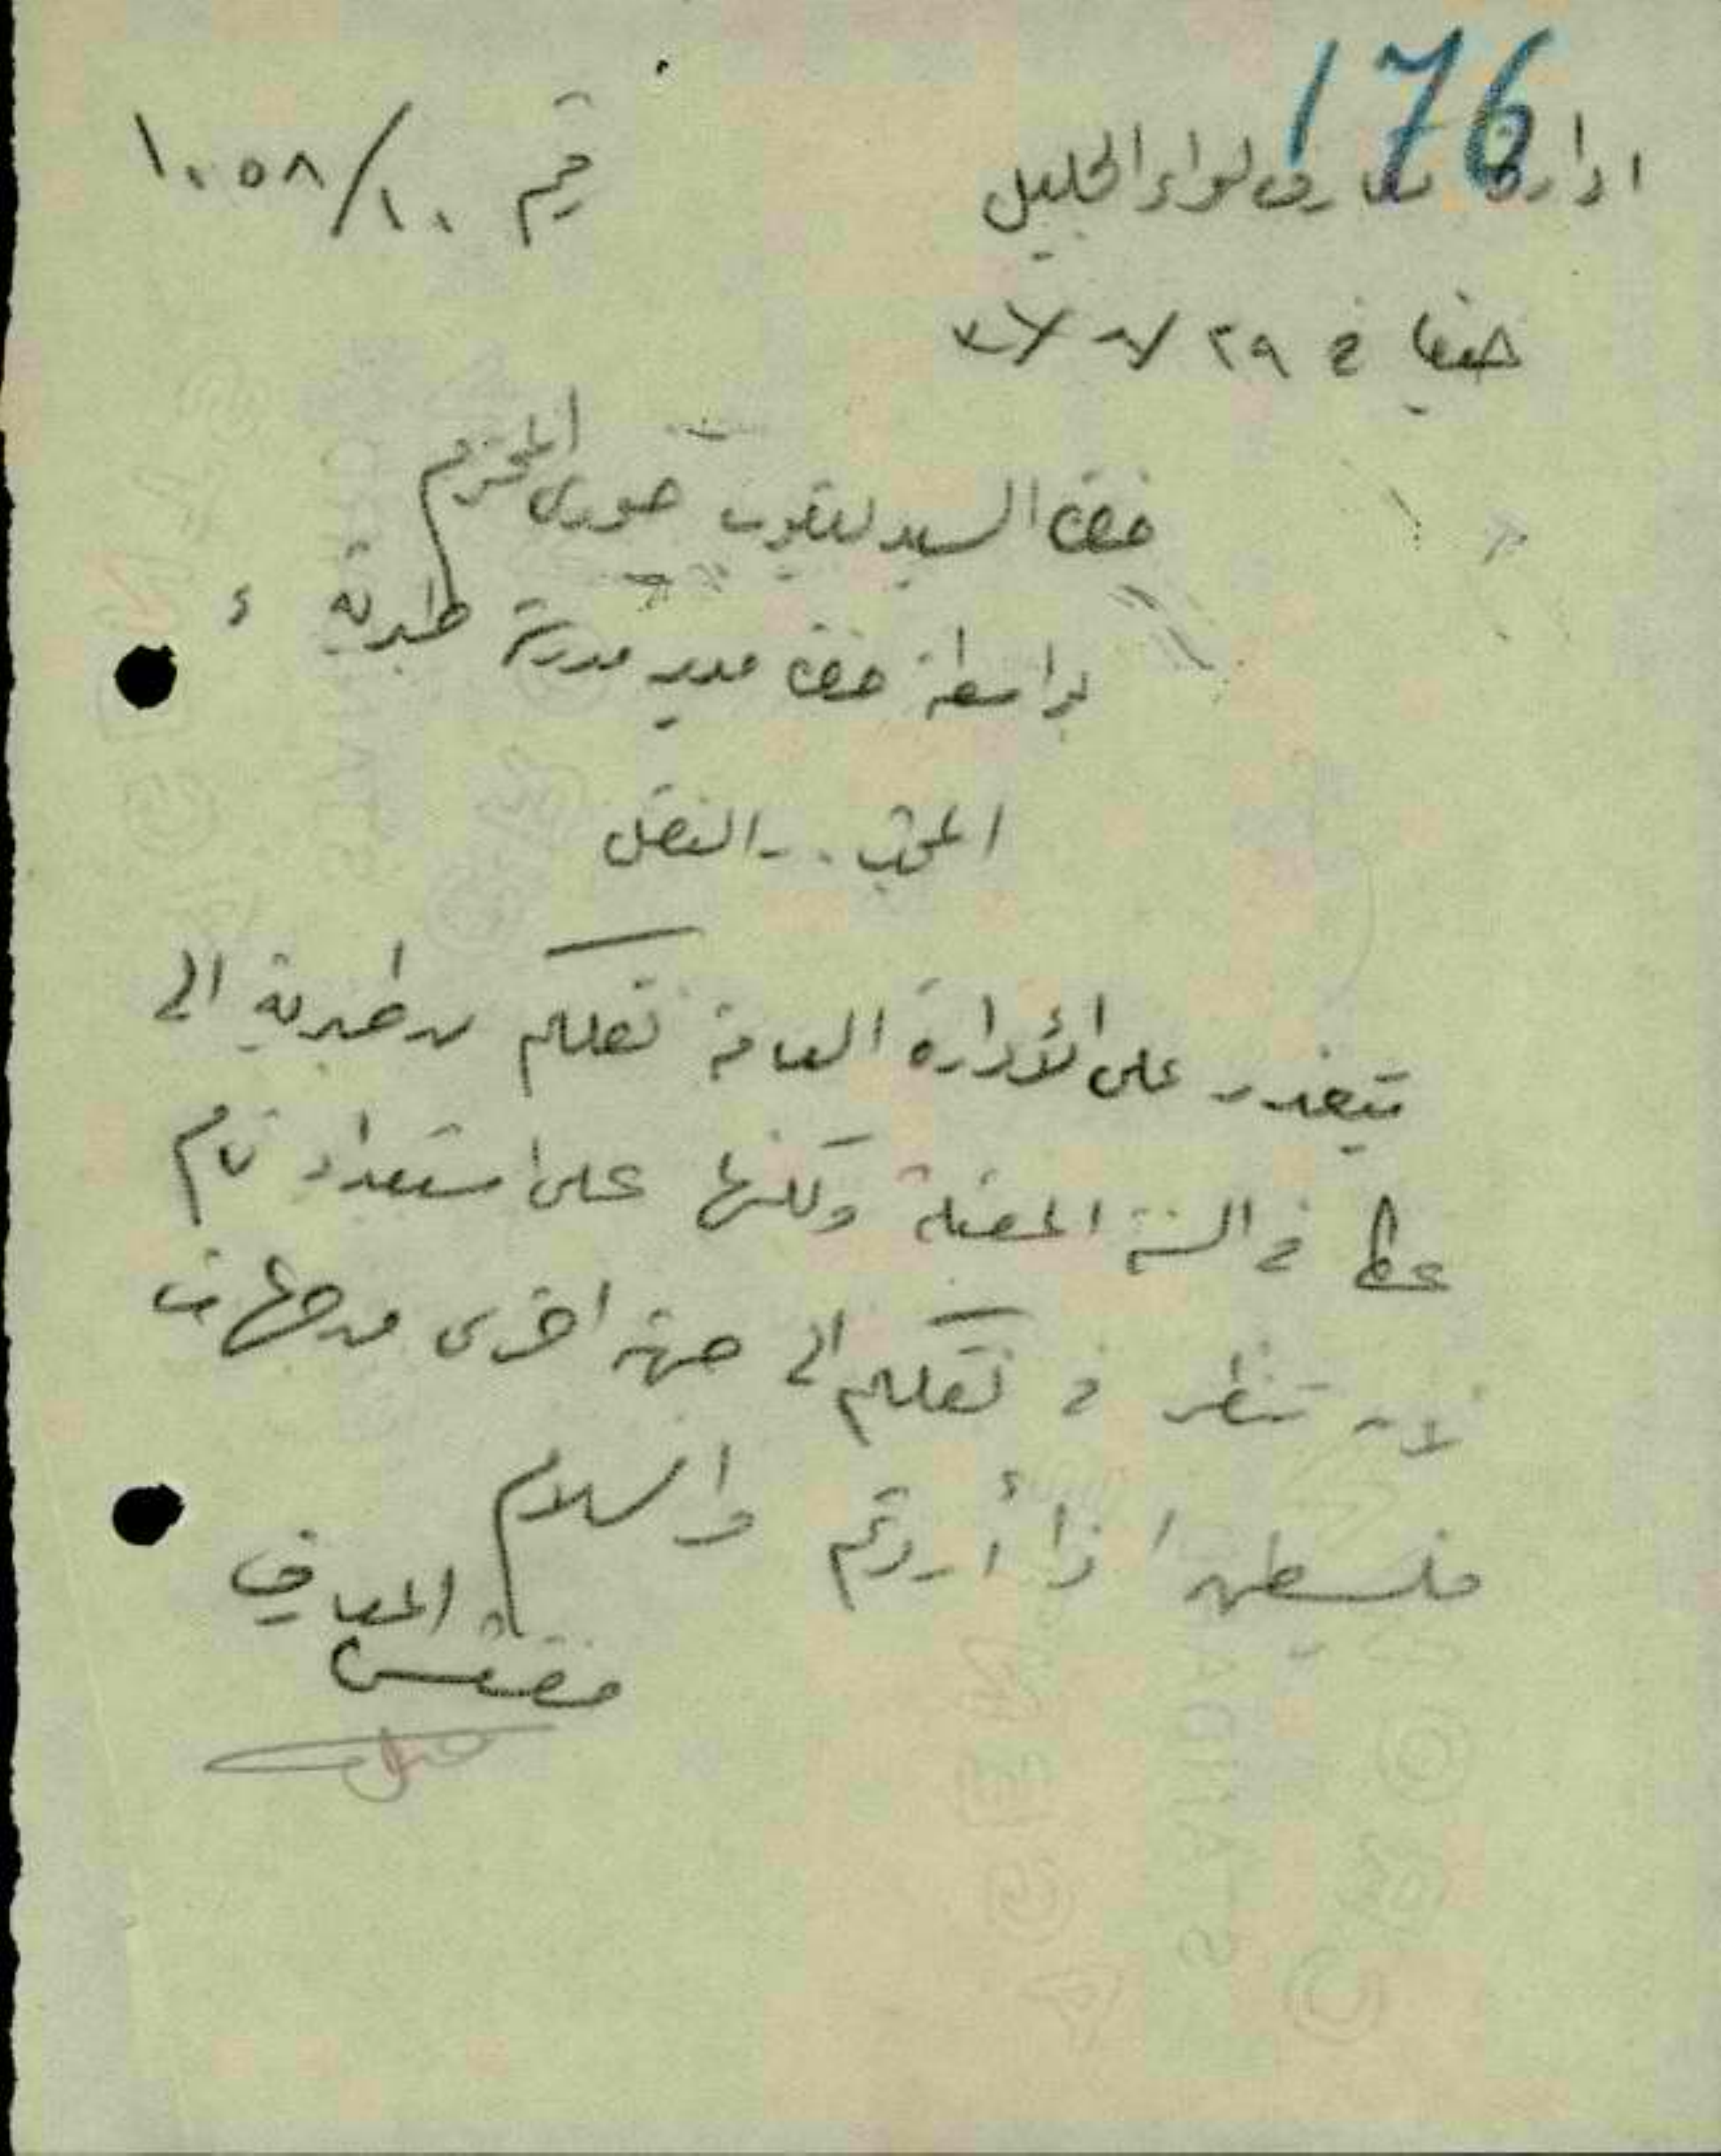 176
ادارة معارف لواء الجليل
رقم ١٠/١٠٥٨
حيفا في ٢٩/٨/
حضرة السيد يعقوب خوري المحترم
بواسطة حضرة مدير مدرسة طبرية ،
النقل
يتعذر على الأدارة العامة نقلكم من طبرية الى
عكا في السنة المقبلة ولكنها على استعداد تام
لان تنظر في نقلكم الى جهة اخرى من جهات
فلسطين اذا أردتم والسلام
مفتش المعارف